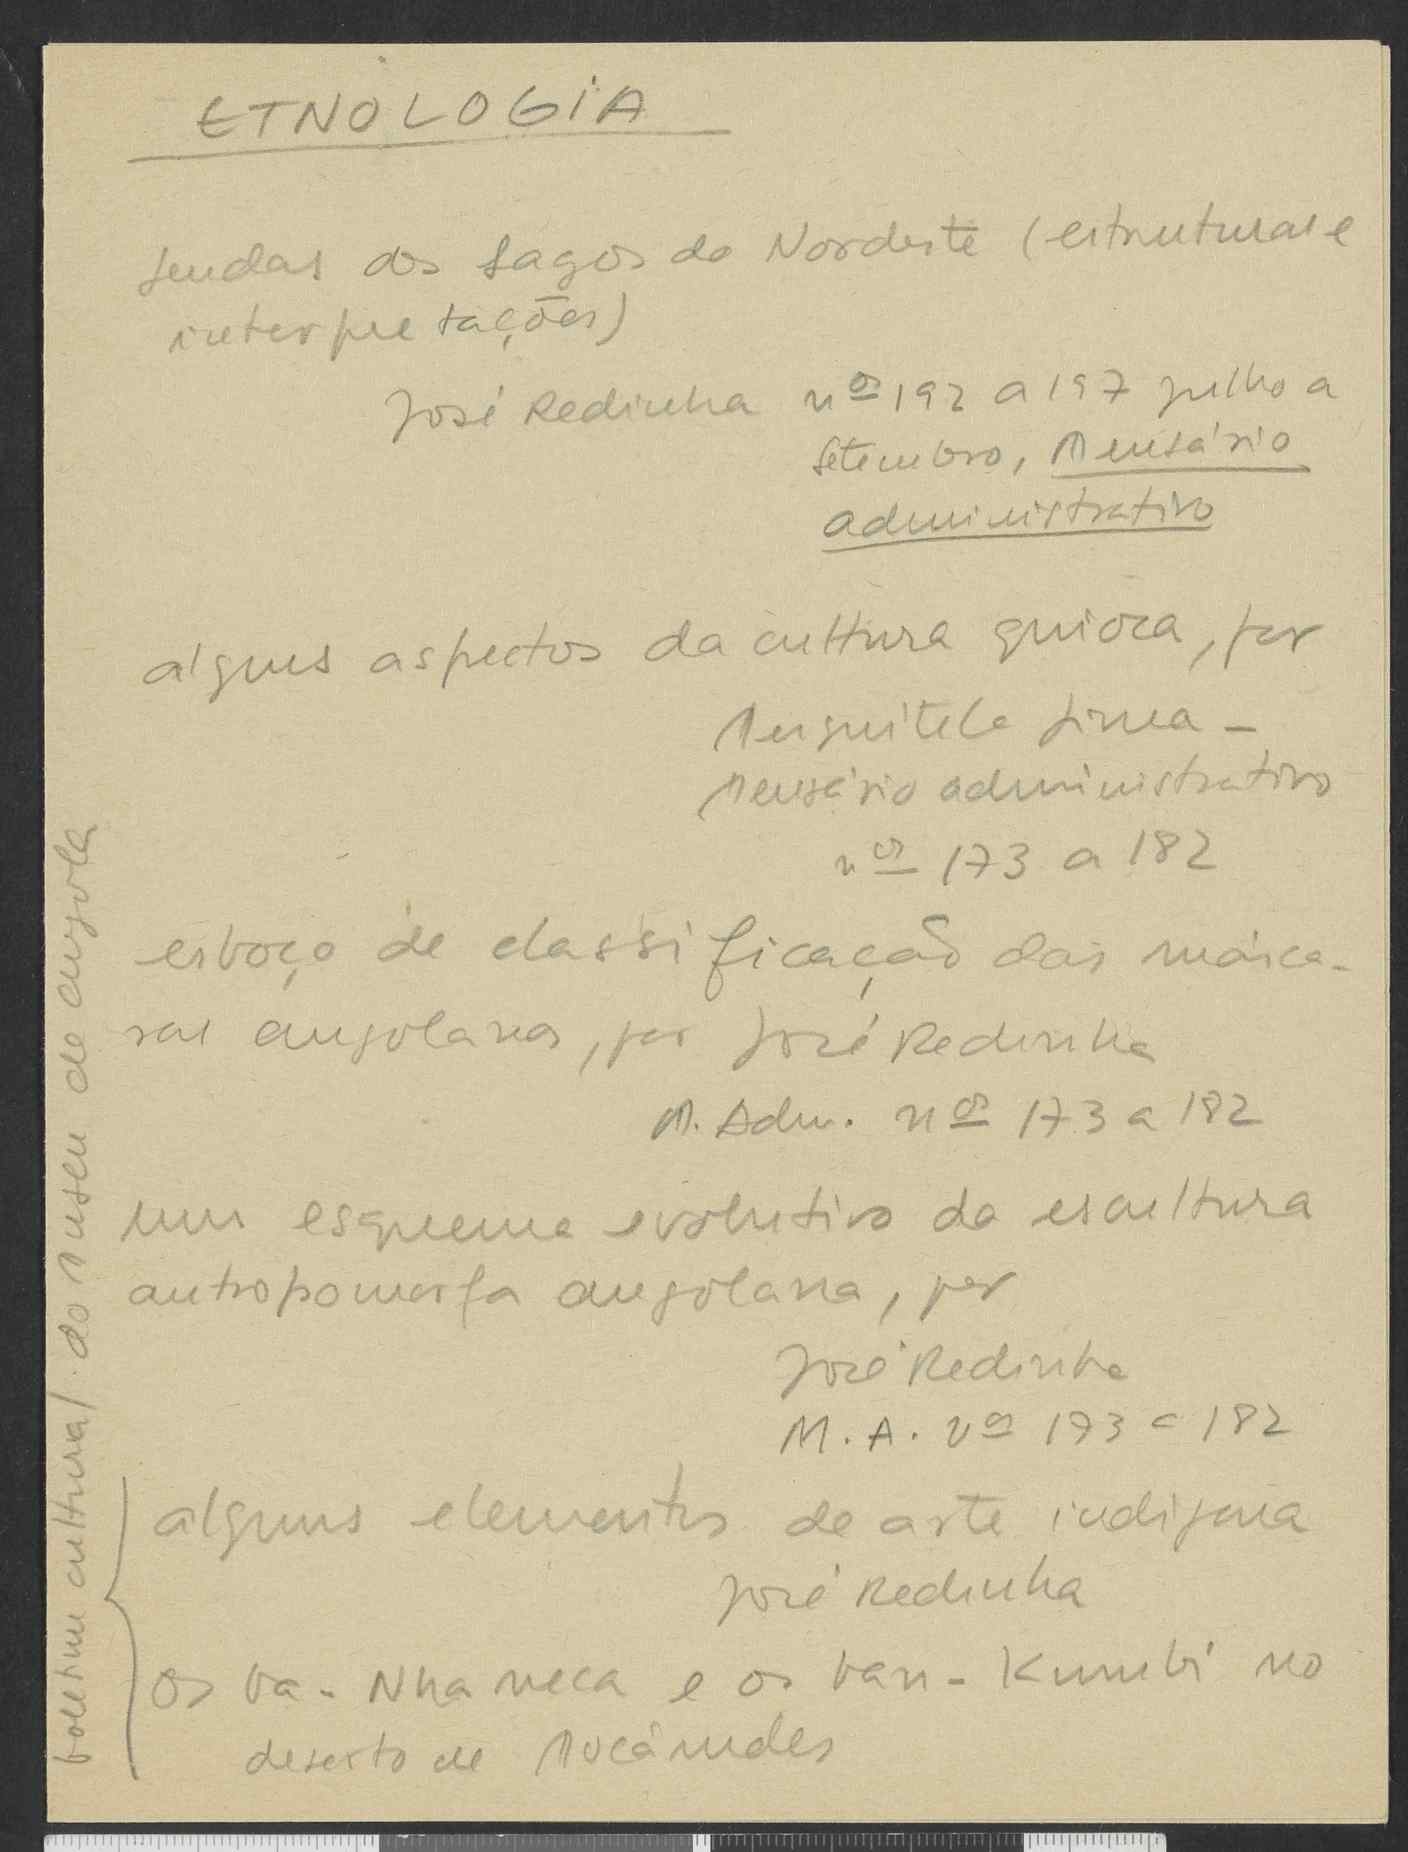 ETNOLOGIA
lendas dos lagos do Nordeste (estruturas e
interpretações)
José Redinha nos 192 a 197 julho a
setembro, Mensário
administrativo
alguns aspectos da cultura quioca, por
Mesquitela Lima -
Mensário administrativo
nos 173 a 182
esboço de classificação das másca-
ras angolanas, por José Redinha
M. Adm. nos 173 a 182
um esquema evolutivo da escultura
antropomorfa angolana, por
José Redinha
M. A. nos 173 a 182
alguns elementos de arte indígena
José Redinha
os ba-Nhaneca e os ban-Kumbi no
deserto de Moçâmedes
boletim cultural do Museu de Angola